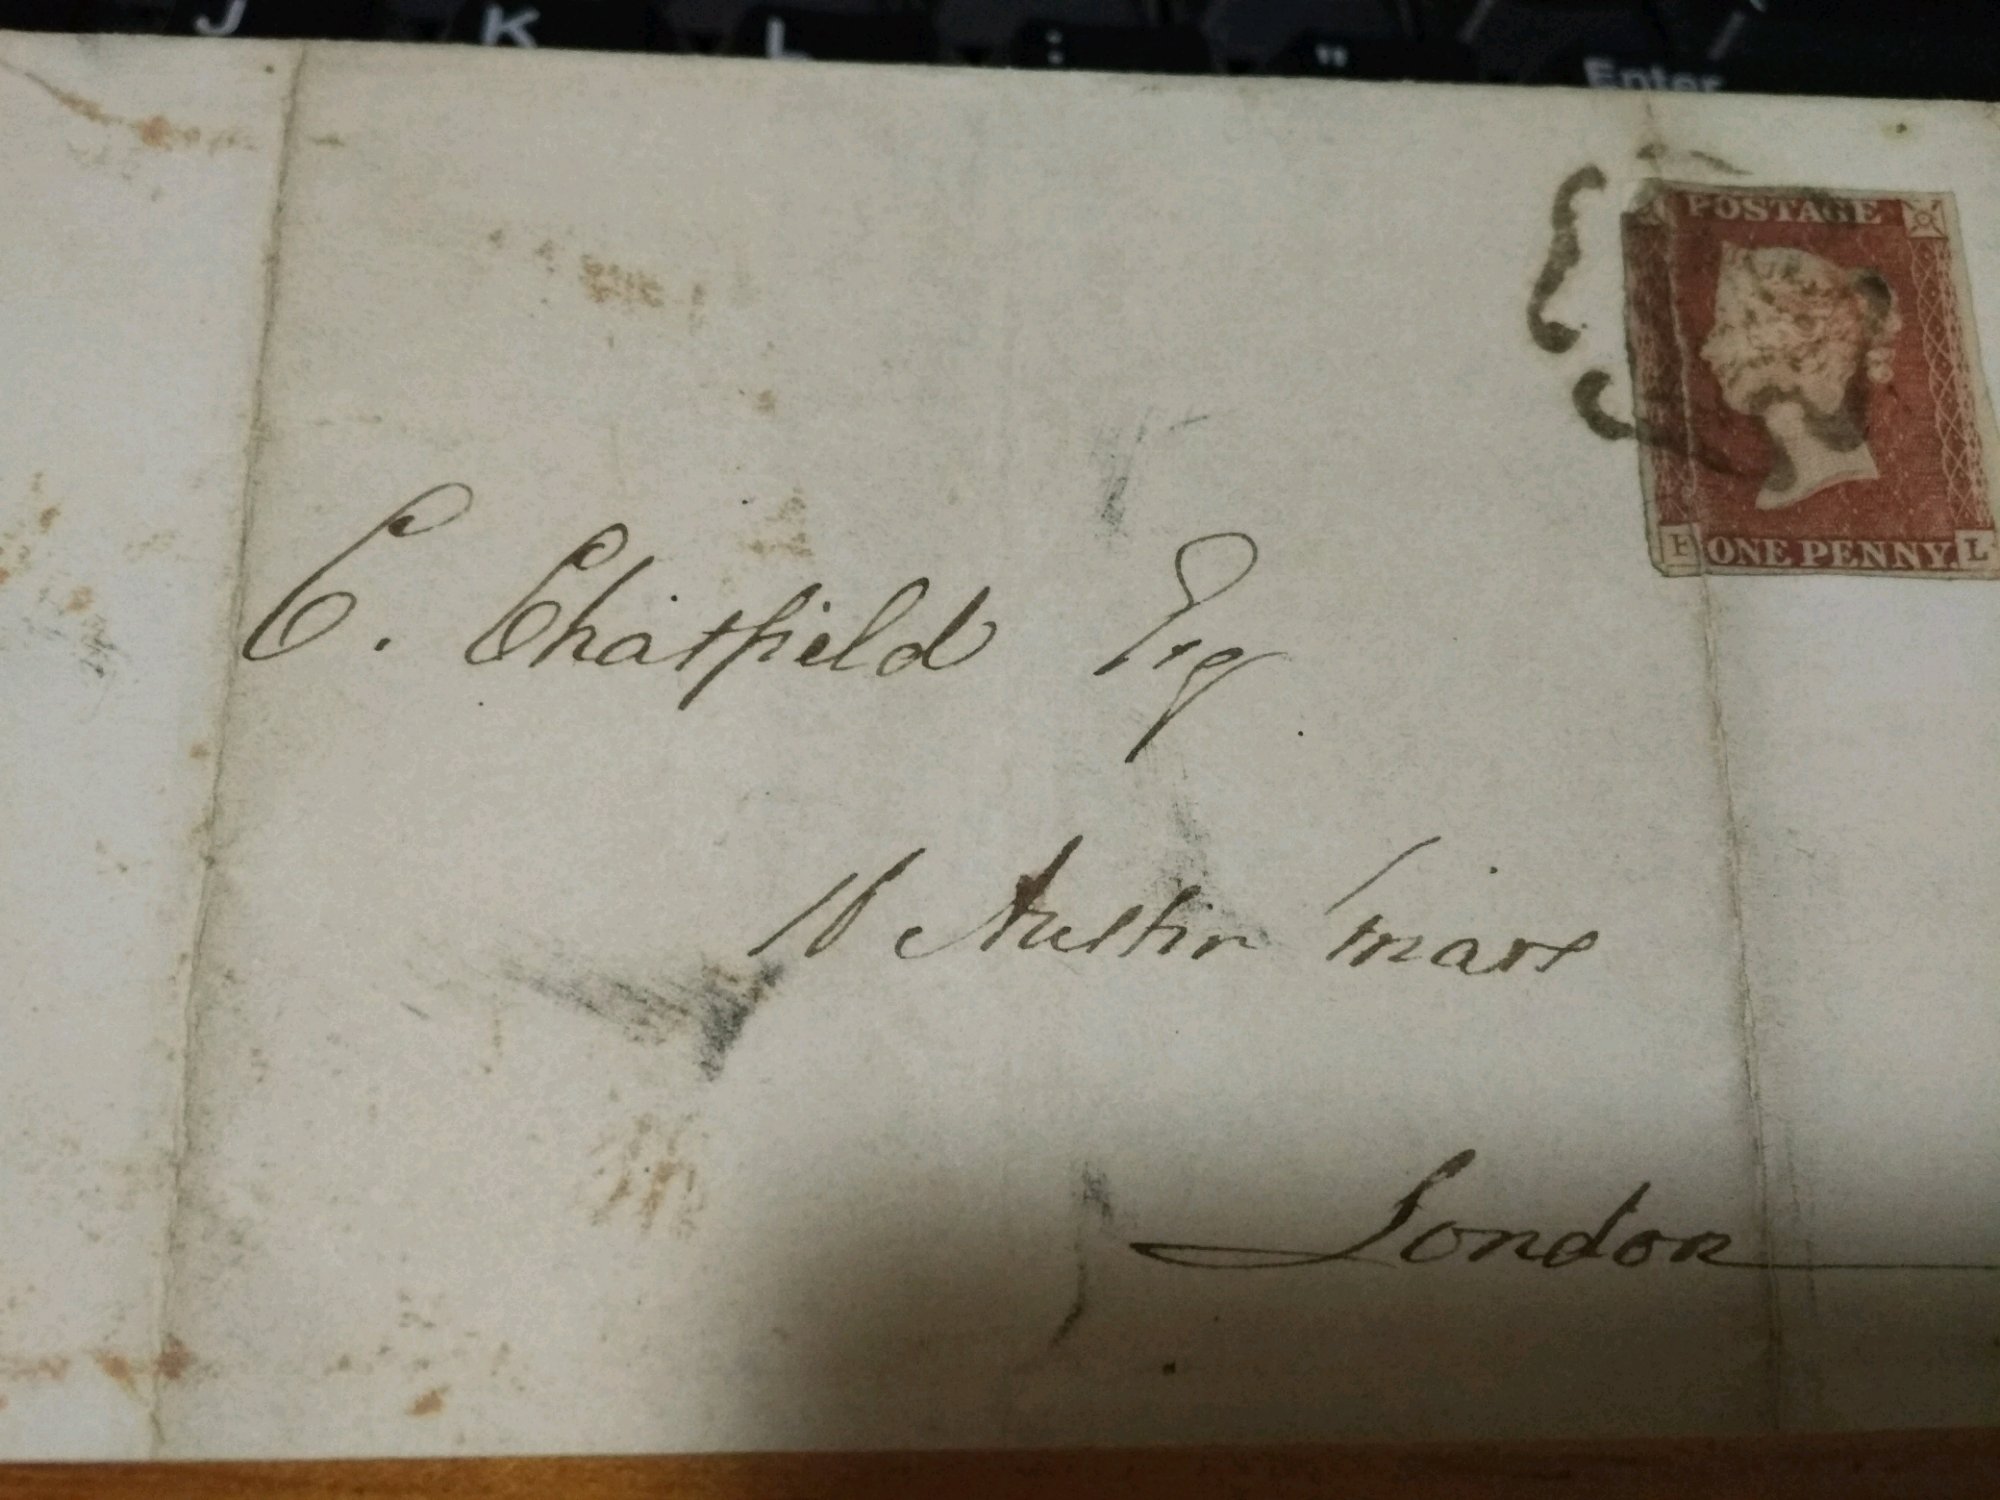 J K L : " Enter
POSTAGE
E ONE PENNY. L
C. Chatfield Esq
Austin Friars
London